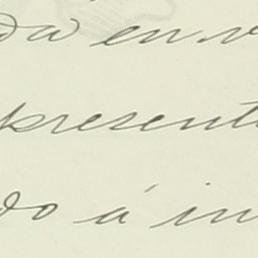 da en v
present
do á in